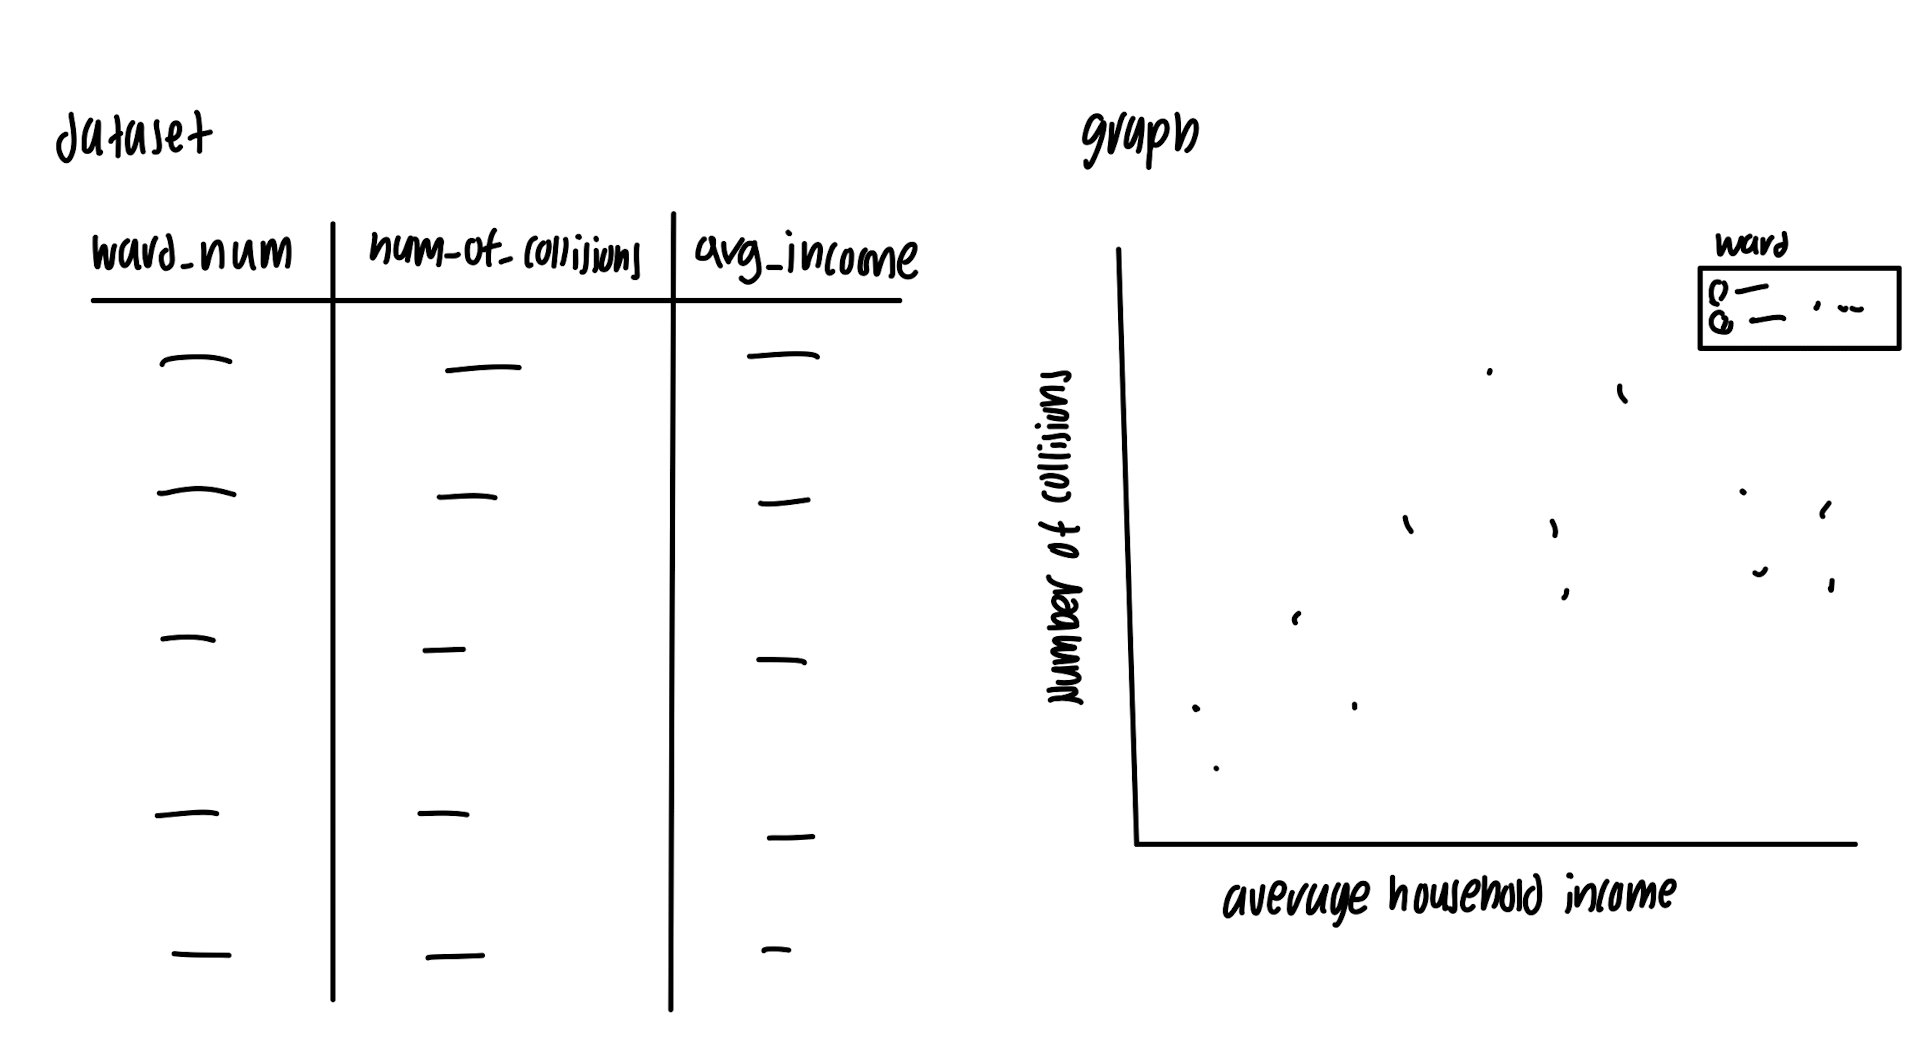 dataset
ward_num num_of_collisions avg_income
graph
ward
Number of collisions
average household income